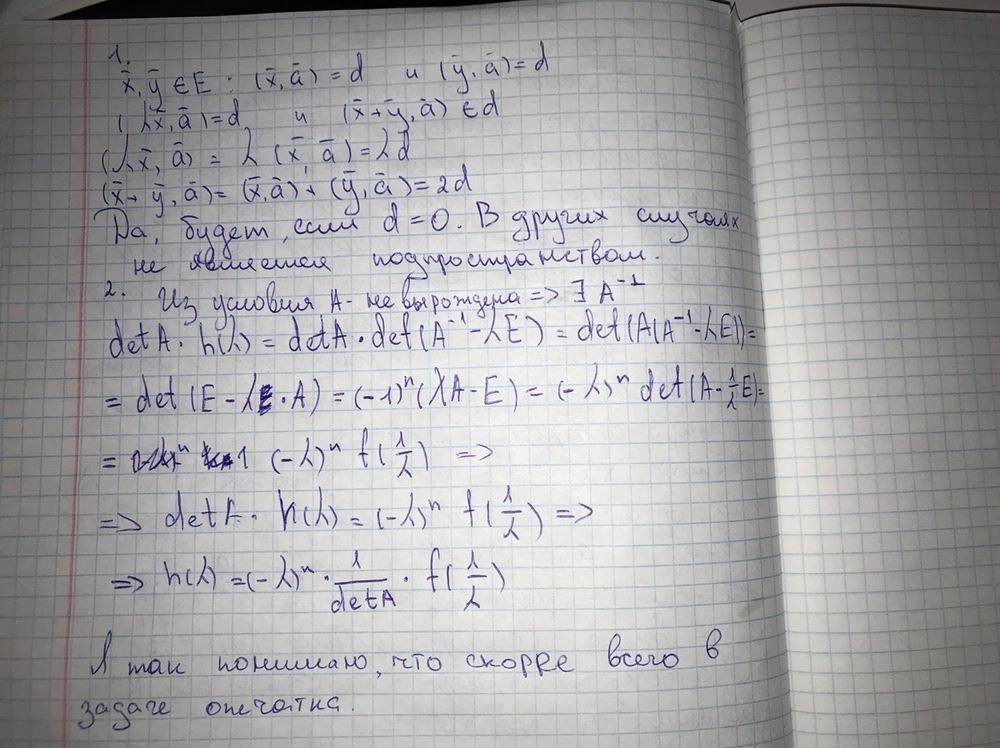 1.
x̄, ȳ ∈ E : (x̄, ā) = d и (ȳ, ā) = d
(λx̄, ā) = d и (x̄ + ȳ, ā) ∈ d
(λx̄, ā) = λ (x̄, ā) = λd
(x̄ + ȳ, ā) = (x̄, ā) + (ȳ, ā) = 2d
Да, будет, если d = 0. В других случаях
не является подпространством.
2. Из условия A - не вырождена => ∃ A⁻¹
detA · h(λ) = detA · det(A⁻¹ - λE) = det(A(A⁻¹ - λE)) =
= det (E - λE · A) = (-1)ⁿ (λA - E) = (-λ)ⁿ det(A - 1/λ E) =
= (-λ)ⁿ f(1/λ) =>
=> detA · h(λ) = (-λ)ⁿ f(1/λ) =>
=> h(λ) = (-λ)ⁿ · 1/detA · f(1/λ)
Я так понимаю, что скорре всего в
задаче опечатка.